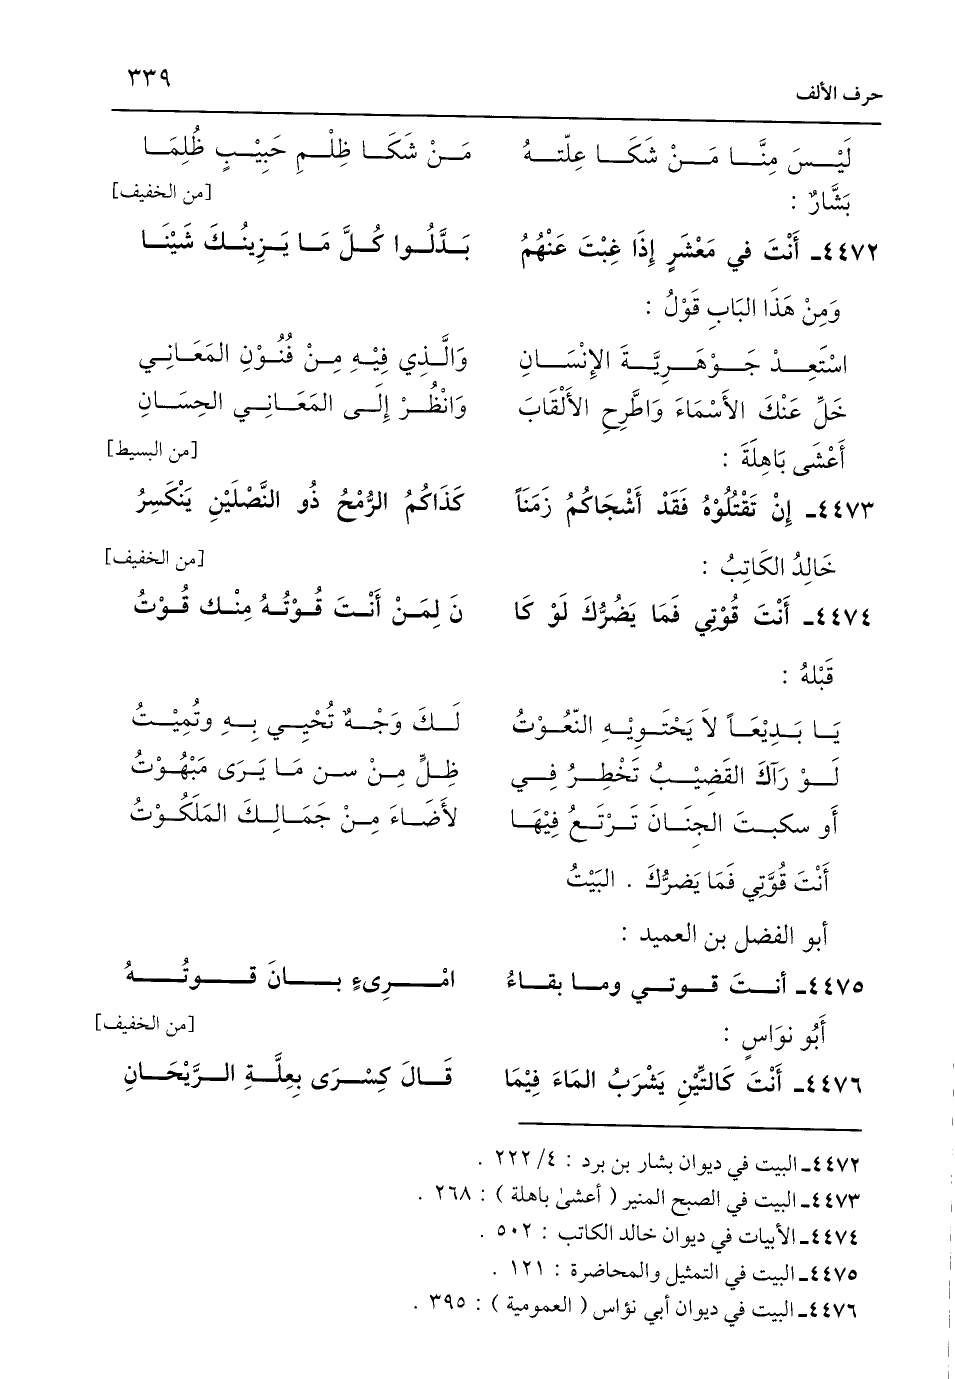 حرف الألف ٣٣٩
لَيْسَ مِنَّا مَنْ شَكَا عِلَّتهُ مَنْ شكَا ظِلْمِ حَبِيْبٍ ظُلِمَا
بَشَّارٌ : [من الخفيف]
٤٤٧٢ـ أَنْتَ في مَعْشَرٍ إِذَا غِبْتَ عَنْهُمُ بَدَّلُوا كُلَّ مَا يَزِينُكَ شَيْنَا
وَمِنْ هَذَا البَابِ قَوْلُ :
اسْتَعِذْ جَوْهَرِيَّةَ الإِنْسَانِ وَالَّذِي فِيْهِ مِنْ فُنُوْنِ المَعَانِي
خَلِّ عَنْكَ الأَسْمَاءَ وَاطَّرِحِ الأَلْقَابَ وَانْظُرْ إِلَى المَعَانِي الحِسَانِ
أَعْشَى بَاهِلَةَ : [من البسيط]
٤٤٧٣ـ إِنْ تَقْتُلُوْهُ فَقَدْ أَشْجَاكُمُ زَمَنَاً كَذَاكُمُ الرُّمْحُ ذُو النَّصْلَيْنِ يَنْكَسِرُ
خَالِدُ الكَاتِبُ : [من الخفيف]
٤٤٧٤ـ أَنْتَ قُوْتِي فَمَا يَضُرُّكَ لَوْ كَا نَ لِمَنْ أَنْتَ قُوْتُهُ مِنْك قُوْتُ
قَبْلهُ :
يَا بَدِيْعَاً لاَ يَحْتَوِيْهِ النّعُوْتُ لَكَ وَجْهٌ تُحْيِي بِهِ وتُمِيْتُ
لَوْ رَآكَ القَضِيْبُ تَخْطِرُ فِي ظِلٍّ مِنْ سن مَا يَرَى مَبْهُوْتُ
أَو سكبتَ الجِنَانَ تَرْتَعُ فِيْهَا لأَضَاءَ مِنْ جَمَالِكَ المَلَكُوْتُ
أَنْتَ قُوَّتِي فَمَا يَضرُّكَ . البَيْتُ
أبو الفضل بن العميد :
٤٤٧٥ـ أنتَ قوتي وما بقاءُ امْرِىءٍ بانَ قوتُهُ
أَبُو نوَاسٍ : [من الخفيف]
٤٤٧٦ـ أَنْتَ كَالتِّيْنِ يَشْرَبُ المَاءَ فِيْمَا قَالَ كِسْرَى بِعِلَّةِ الرَّيْحَانِ
٤٤٧٢ـ البيت في ديوان بشار بن برد : ٤/ ٢٢٢ .
٤٤٧٣ـ البيت في الصبح المنير ( أعشىٰ باهلة ) : ٢٦٨ .
٤٤٧٤ـ الأبيات في ديوان خالد الكاتب : ٥٠٢ .
٤٤٧٥ـ البيت في التمثيل والمحاضرة : ١٢١ .
٤٤٧٦ـ البيت في ديوان أبي نؤاس ( العمومية ) : ٣٩٥ .